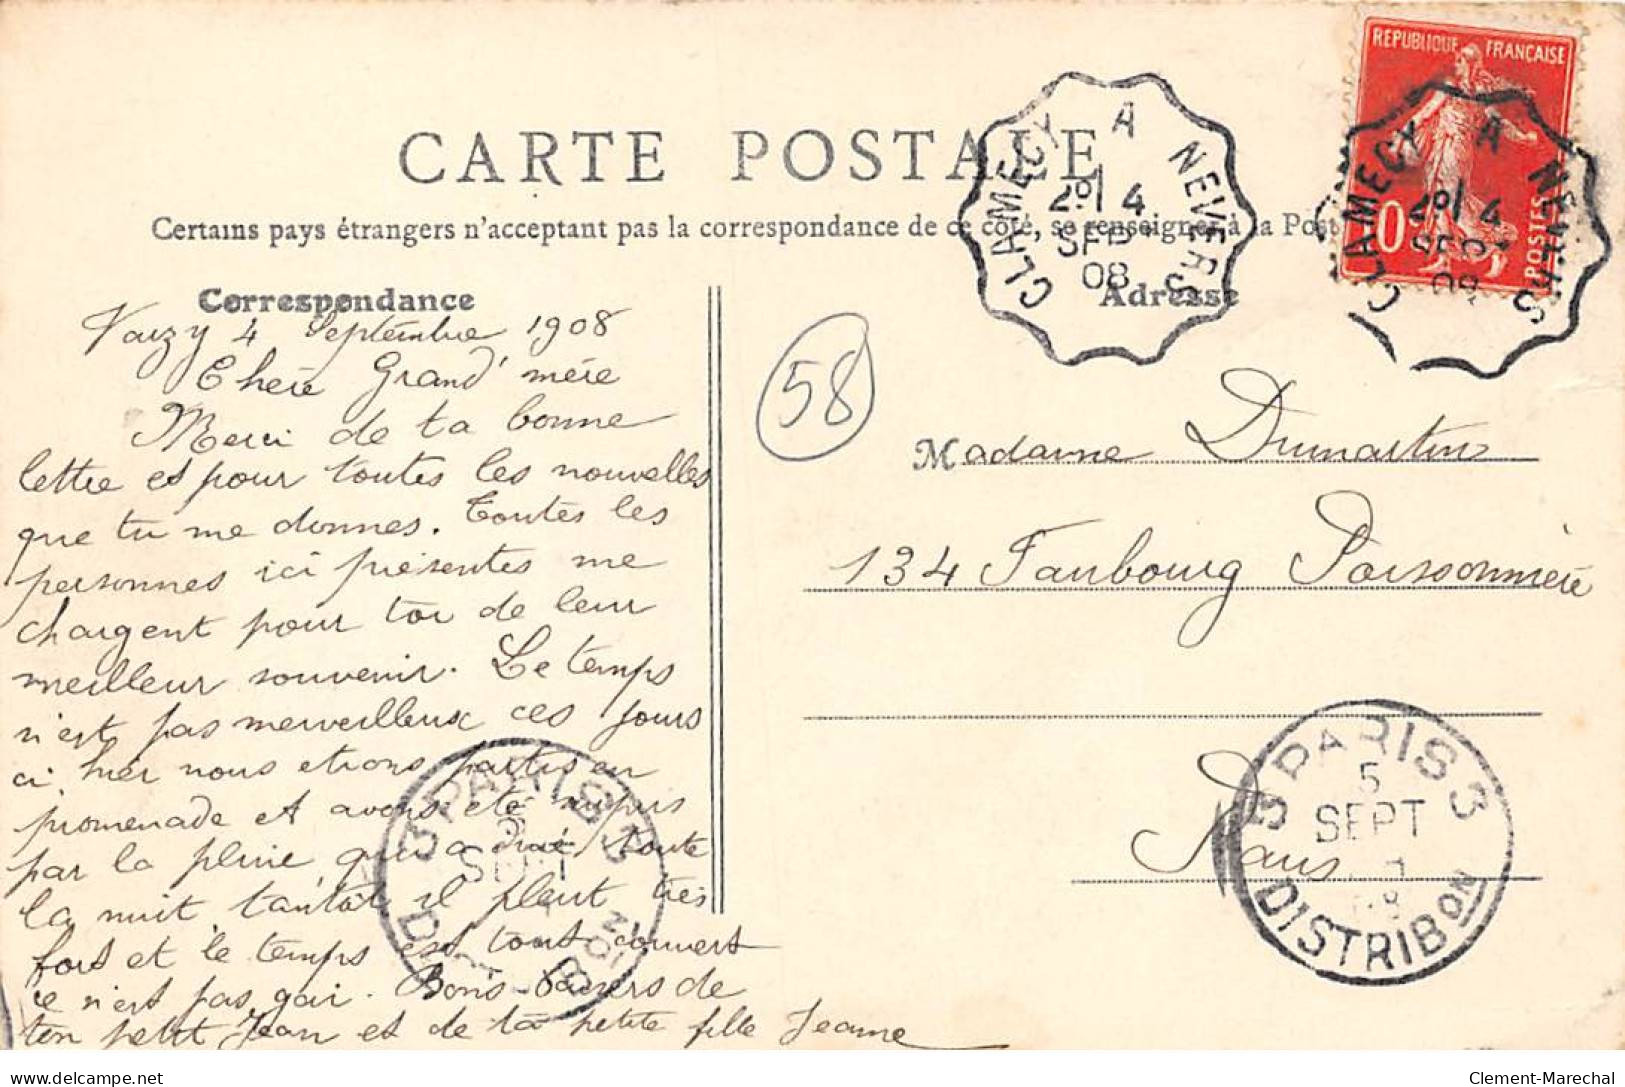 REPUBLIQUE FRANÇAISE
10
POSTES
CLAMECY A NEVERS
2º/ 4
SEPT
08
CLAMECY A NEVERS
2º/ 4
SEPT
08
CARTE POSTALE
Certains pays étrangers n'acceptant pas la correspondance de ce côté, se renseigner à la Post
Correspondance
Adresse
Varzy 4 Septembre 1908
Chère Grand'mère
Merci de ta bonne
lettre et pour toutes les nouvelles
que tu me donnes. Toutes les
personnes ici présentes me
chargent pour toi de leur
meilleur souvenir. Le temps
n'est pas merveilleux ces jours
ci hier nous etions partis en
promenade et avons été
par la pluie qui a duré toute
la nuit tantôt il pleut très
fort et le temps est tout couvert
ce n'est pas gai. Bons baisers de
ton petit Jean et de ta petite fille Jeanne
58
Madame Dumartin
134 Faubourg Poissonnière
Paris
3 PARIS 3
5
SEPT
DISTRIBON
3 PARIS 3
5
SEPT
08
DISTRIBON
delcampe.net
Clement-Marechal